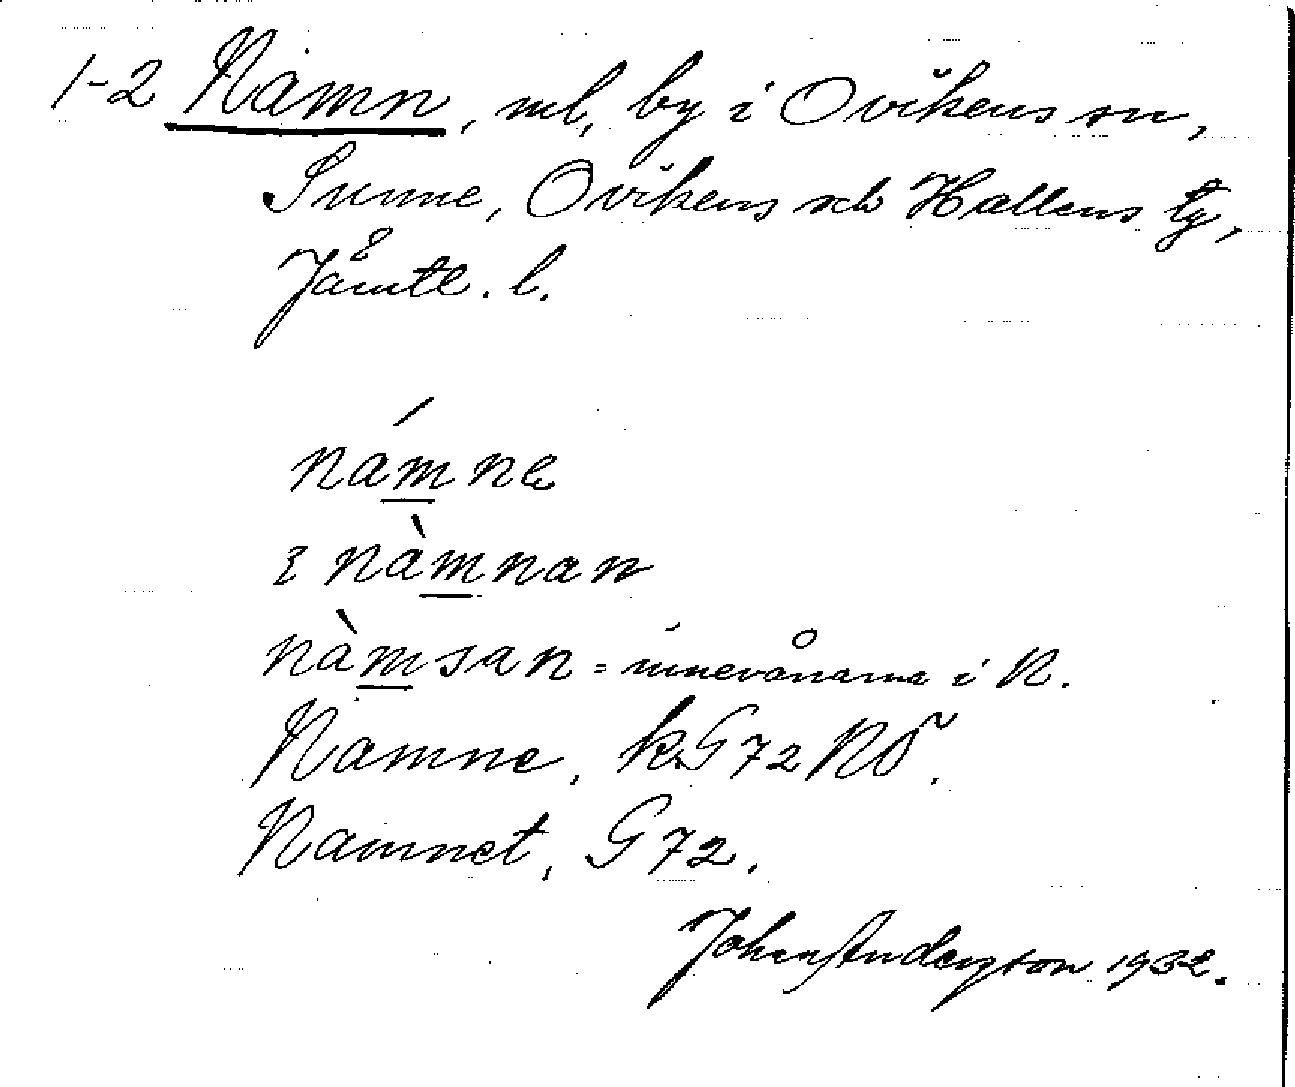 1-2 Namn, ml, by i Ovikens sn,
Sunne, Ovikens och Hallens tg,
Jämtl. l.
námne
i nàmnan
nàmsan = innevånarna i N.
Namne, k. G 72 NÖ.
Namnet, G 72.
Johan Anderzson 1932.